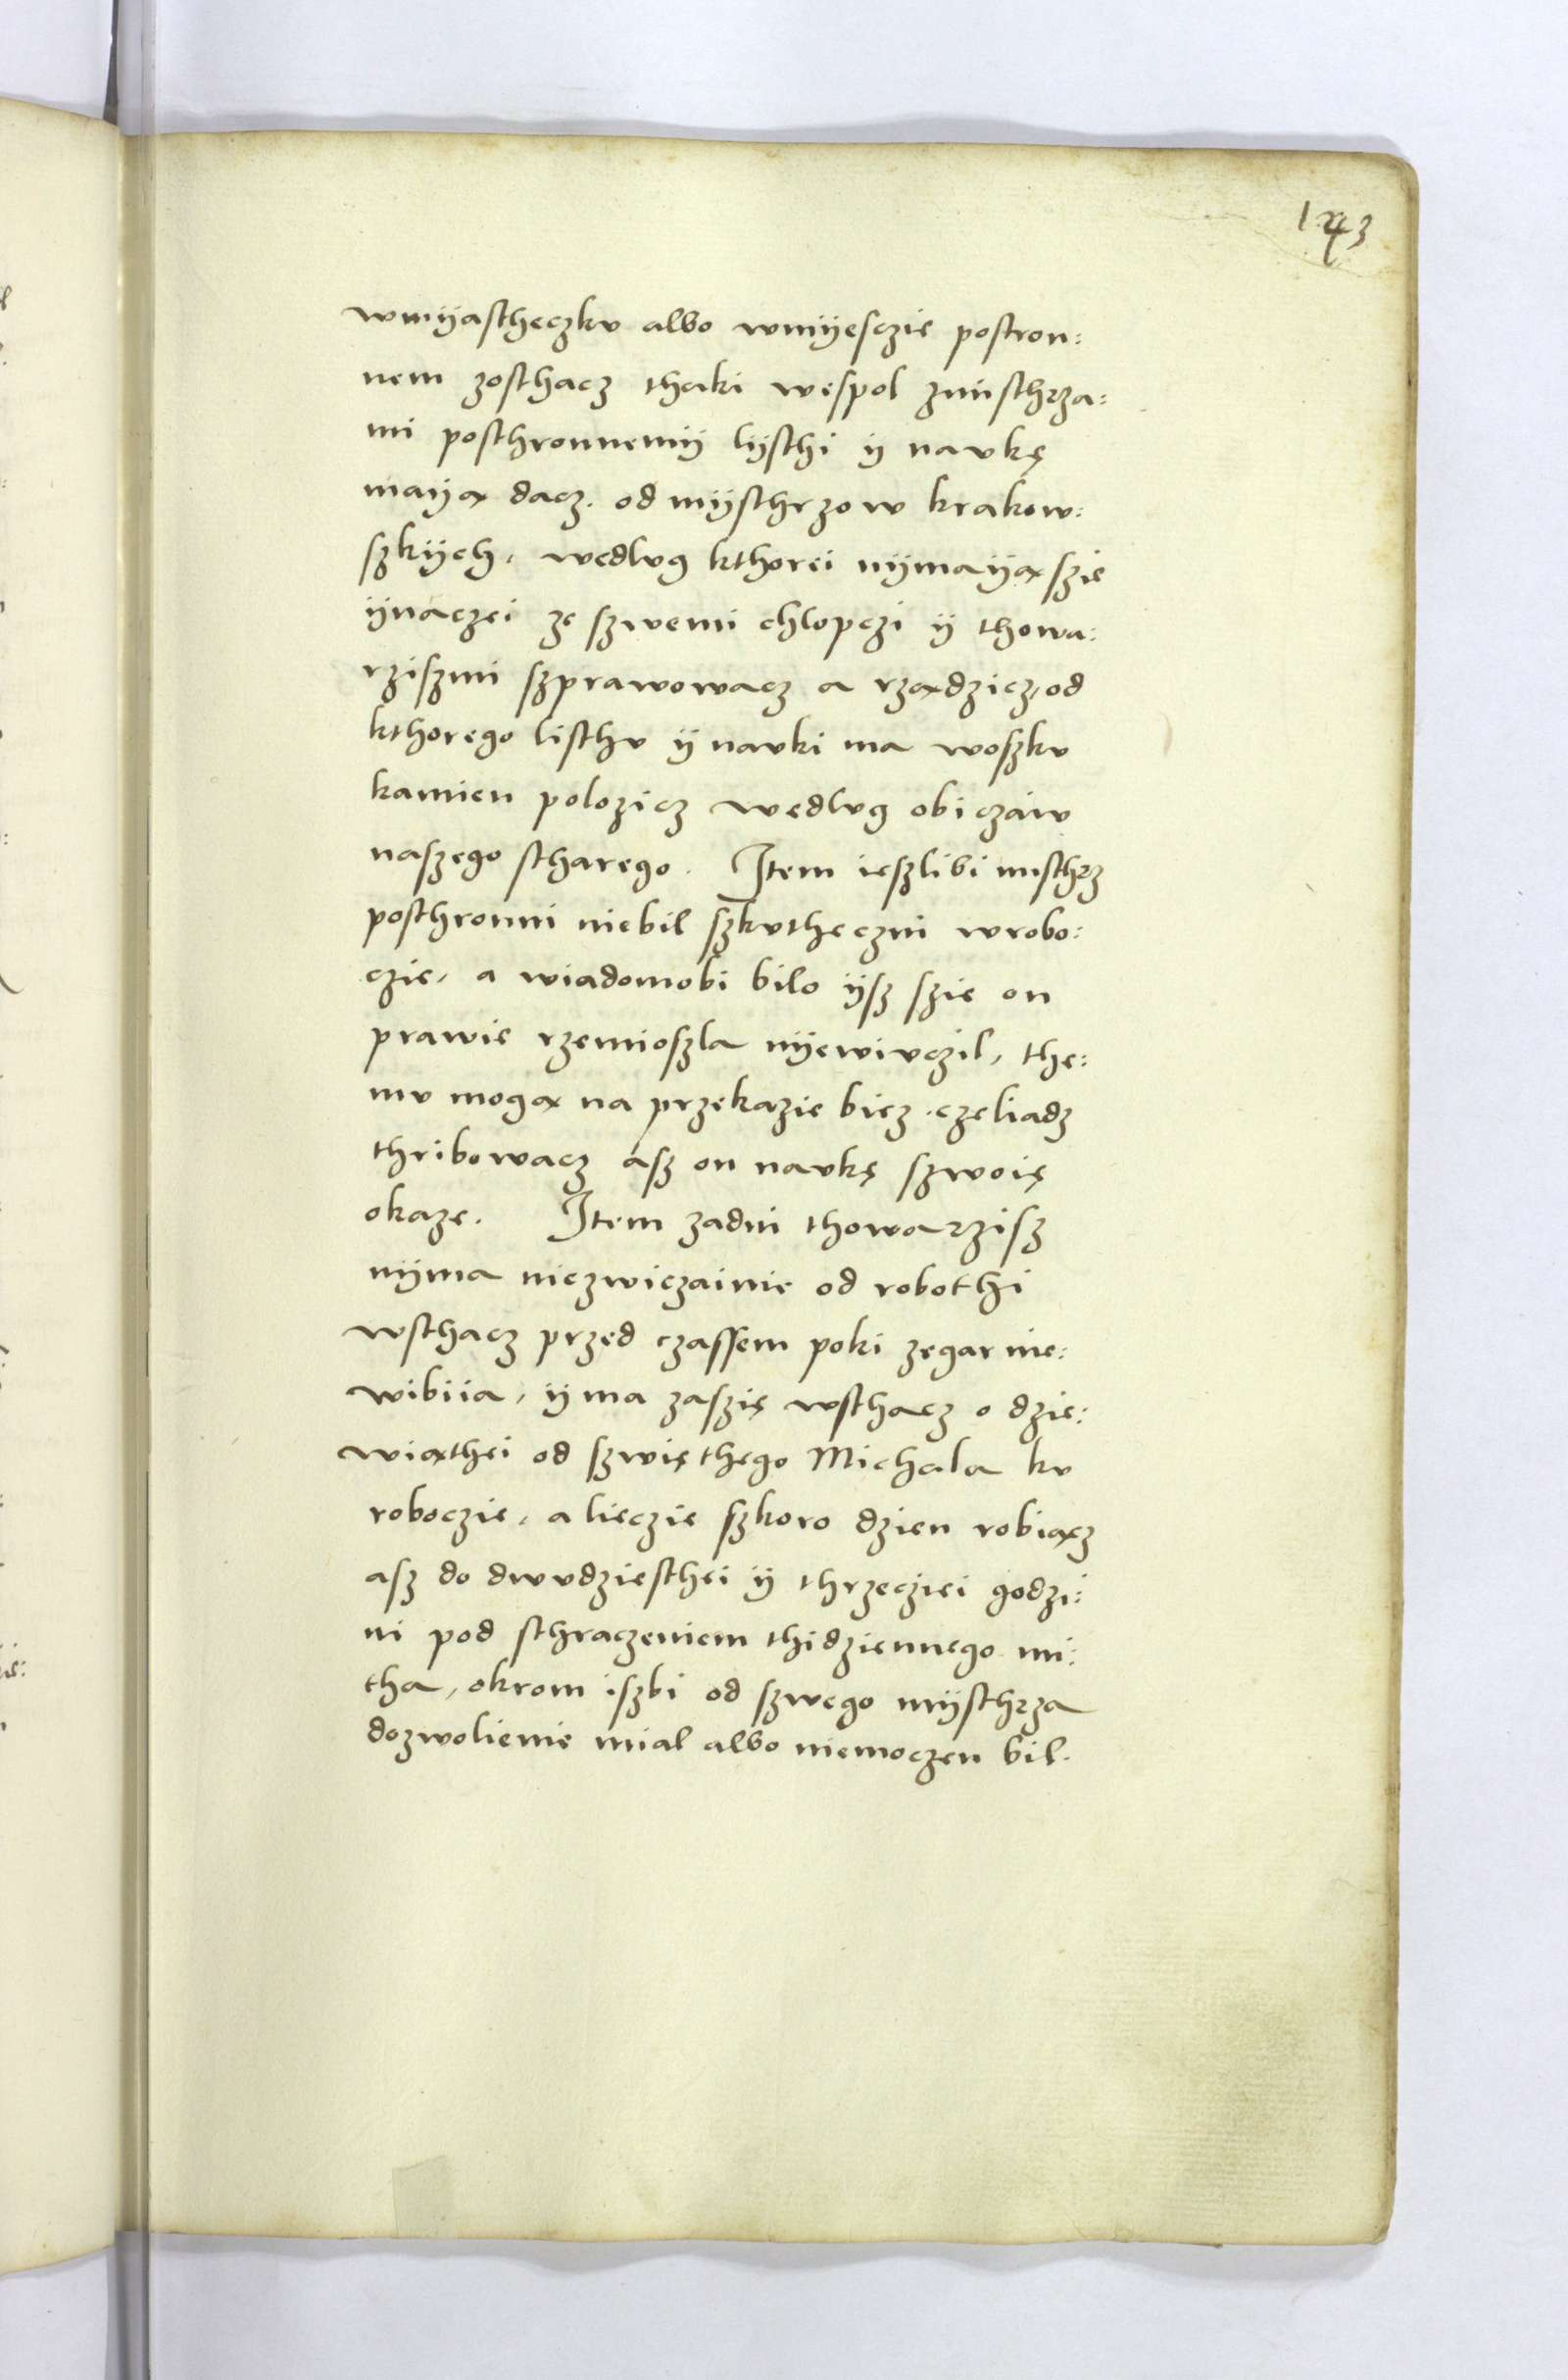 143
wmÿastheczkv albo wmÿesczie postron:
nem zosthacz thaki wespol zmisthrza:
mi posthronnemÿ lÿsthi ÿ navkę
maÿą dacz. od mÿsthrzow krakow:
szkÿch, wedlvg kthorei nÿmaÿą szie
ÿnaczei ze szwemi chlopczi ÿ thowa:
rziszmi szprawowacz a rządzicz, od
kthorego listhv ÿ navki ma woszkv
kamien polozicz wedlvg obiczaiv
naszego stharego. Item ieszlibi misthrz
posthronni niebil szkvtheczni wrobo:
czie, a wiadomobi bilo ÿsz szie on
prawie rzemioszla nÿewivczil, the:
mv mogą na przekazie bicz czeliadz
thribowacz asz on navkę szwoię
okaze. Item zadni thowarzisz
nÿma niezwiczainie od robothi
wsthacz przed czassem poki zegar nie:
wibiia, ÿ ma zaszię wsthacz o dzie:
wiąthei od szwięthego Michala kv
roboczie, a lieczie szkoro dzien robiącz
asz do dwvdziesthei ÿ thrzecziei godzi:
ni pod sthraczeniem thidziennego mi:
tha, okrom iszbi od szwego mÿsthrza
dozwolienie mial albo niemoczen bil.